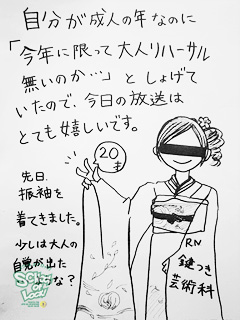 自分が成人の年なのに
「今年に限って大人リハーサル
無いのか…」と しょげて
いたので、今日の放送は
とても嬉しいです。
20才
先日、
振袖を
着てきました。
少しは大人の
自覚が出た
な？
RN
鍵つき
芸術科
School of Lock!